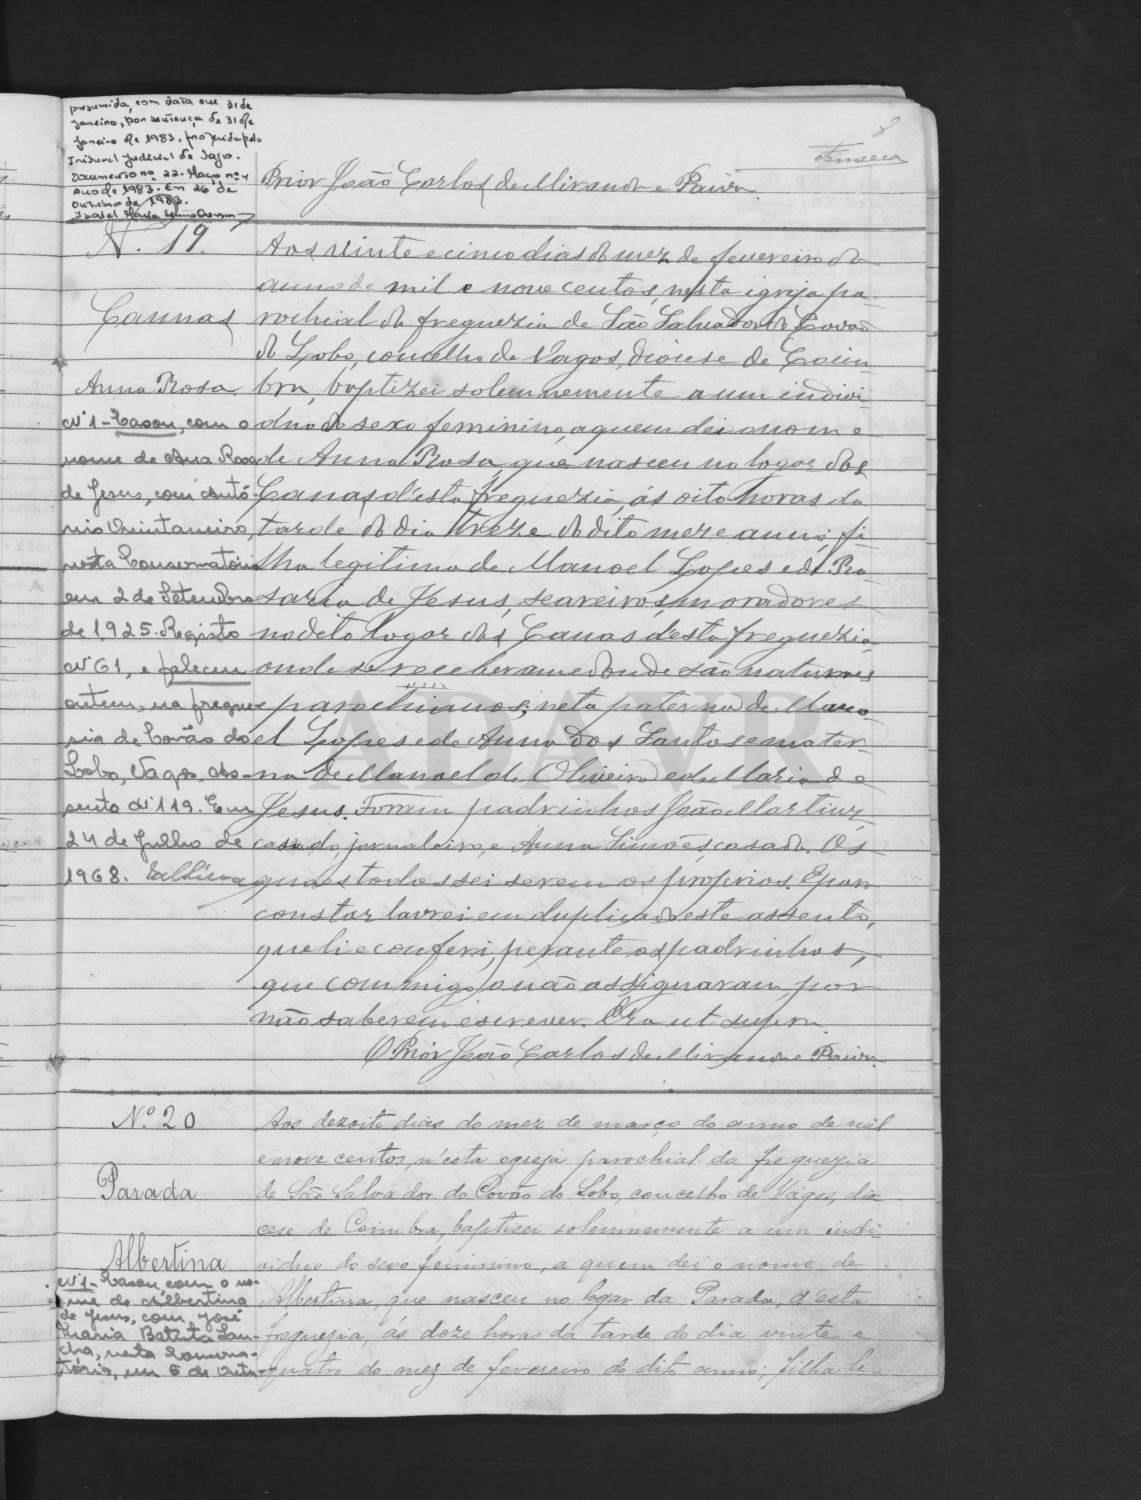 presumida, com data em 31 de
janeiro, por sentença de 31 de
janeiro de 1983, proferida pelo
Tribunal Judicial de Vagos.
Documento nº 22. Maço nº 4
ano de 1983. Em 26 de
Outubro de 1983.
8
Fonseca
Prior João Carlos de Miranda e Paiva.
N. 19.
Cannas
Anna Rosa.
Nº 1 - Casou, com o
nome de Ana Rosa
de Jesus, com Antó-
nio Quintaneiro,
nesta Conservatória
em 2 de Setembro
de 1925. Registo
Nº 61, e faleceu
ontem, na fregue-
sia de Covão do
Lobo, Vagos. As-
sento Nº 119. Em
24 de Julho de
1968.
Aos vinte e cinco dias do mez de fevereiro do
anno de mil e nove centos, nesta igreja pa-
rochial da freguezia de São Salvador do Covão
do Lobo, concelho de Vagos, diocese de Coim-
bra, baptizei solemnemente a um indivi-
duo do sexo feminino, a quem dei o nome
de Anna Rosa, que nasceu no logar das
Canas, d'esta freguezia, ás oito horas da
tarde do dia treze do dito mez e anno, fi-
lha legitima de Manoel Lopes e de Ro-
saria de Jesus, seareiros, moradores
no dito logar das Canas d'esta freguezia,
onde se receberam e donde são naturaes
parochianos; neta paterna de Mano-
el Lopes e de Anna dos Santos e mater-
na de Manoel de Oliveira e de Maria de
Jesus. Foram padrinhos João Martins,
casado, jornaleiro, e Anna Simões, casada. Os
quaes todos sei serem os proprios. E para
constar lavrei em duplicado este assento,
que li e conferi, perante os padrinhos,
que commigo o não assignaram, por
não saberem escrever. Era ut supra.
O Prior João Carlos de Miranda e Paiva.
N.º 20
Parada
Albertina
Nº 1 - Casou com o no-
me de Albertina
de Jesus, com José
Maria Batista San-
cha, nesta Conserva-
tória, em 5 de Outu-
Aos dezoito dias do mez de março do anno de mil
e nove centos, n'esta egreja parochial da freguezia
de São Salvador do Covão do Lobo, concelho de Vagos, dio-
cese de Coimbra, baptisei solemnemente a um indi-
viduo do sexo feminino, a quem dei o nome de
Albertina, que nasceu no logar da Parada, d'esta
freguezia, ás doze horas da tarde do dia vinte e
quatro do mez de fevereiro do dito anno; filha le-
ADAVR